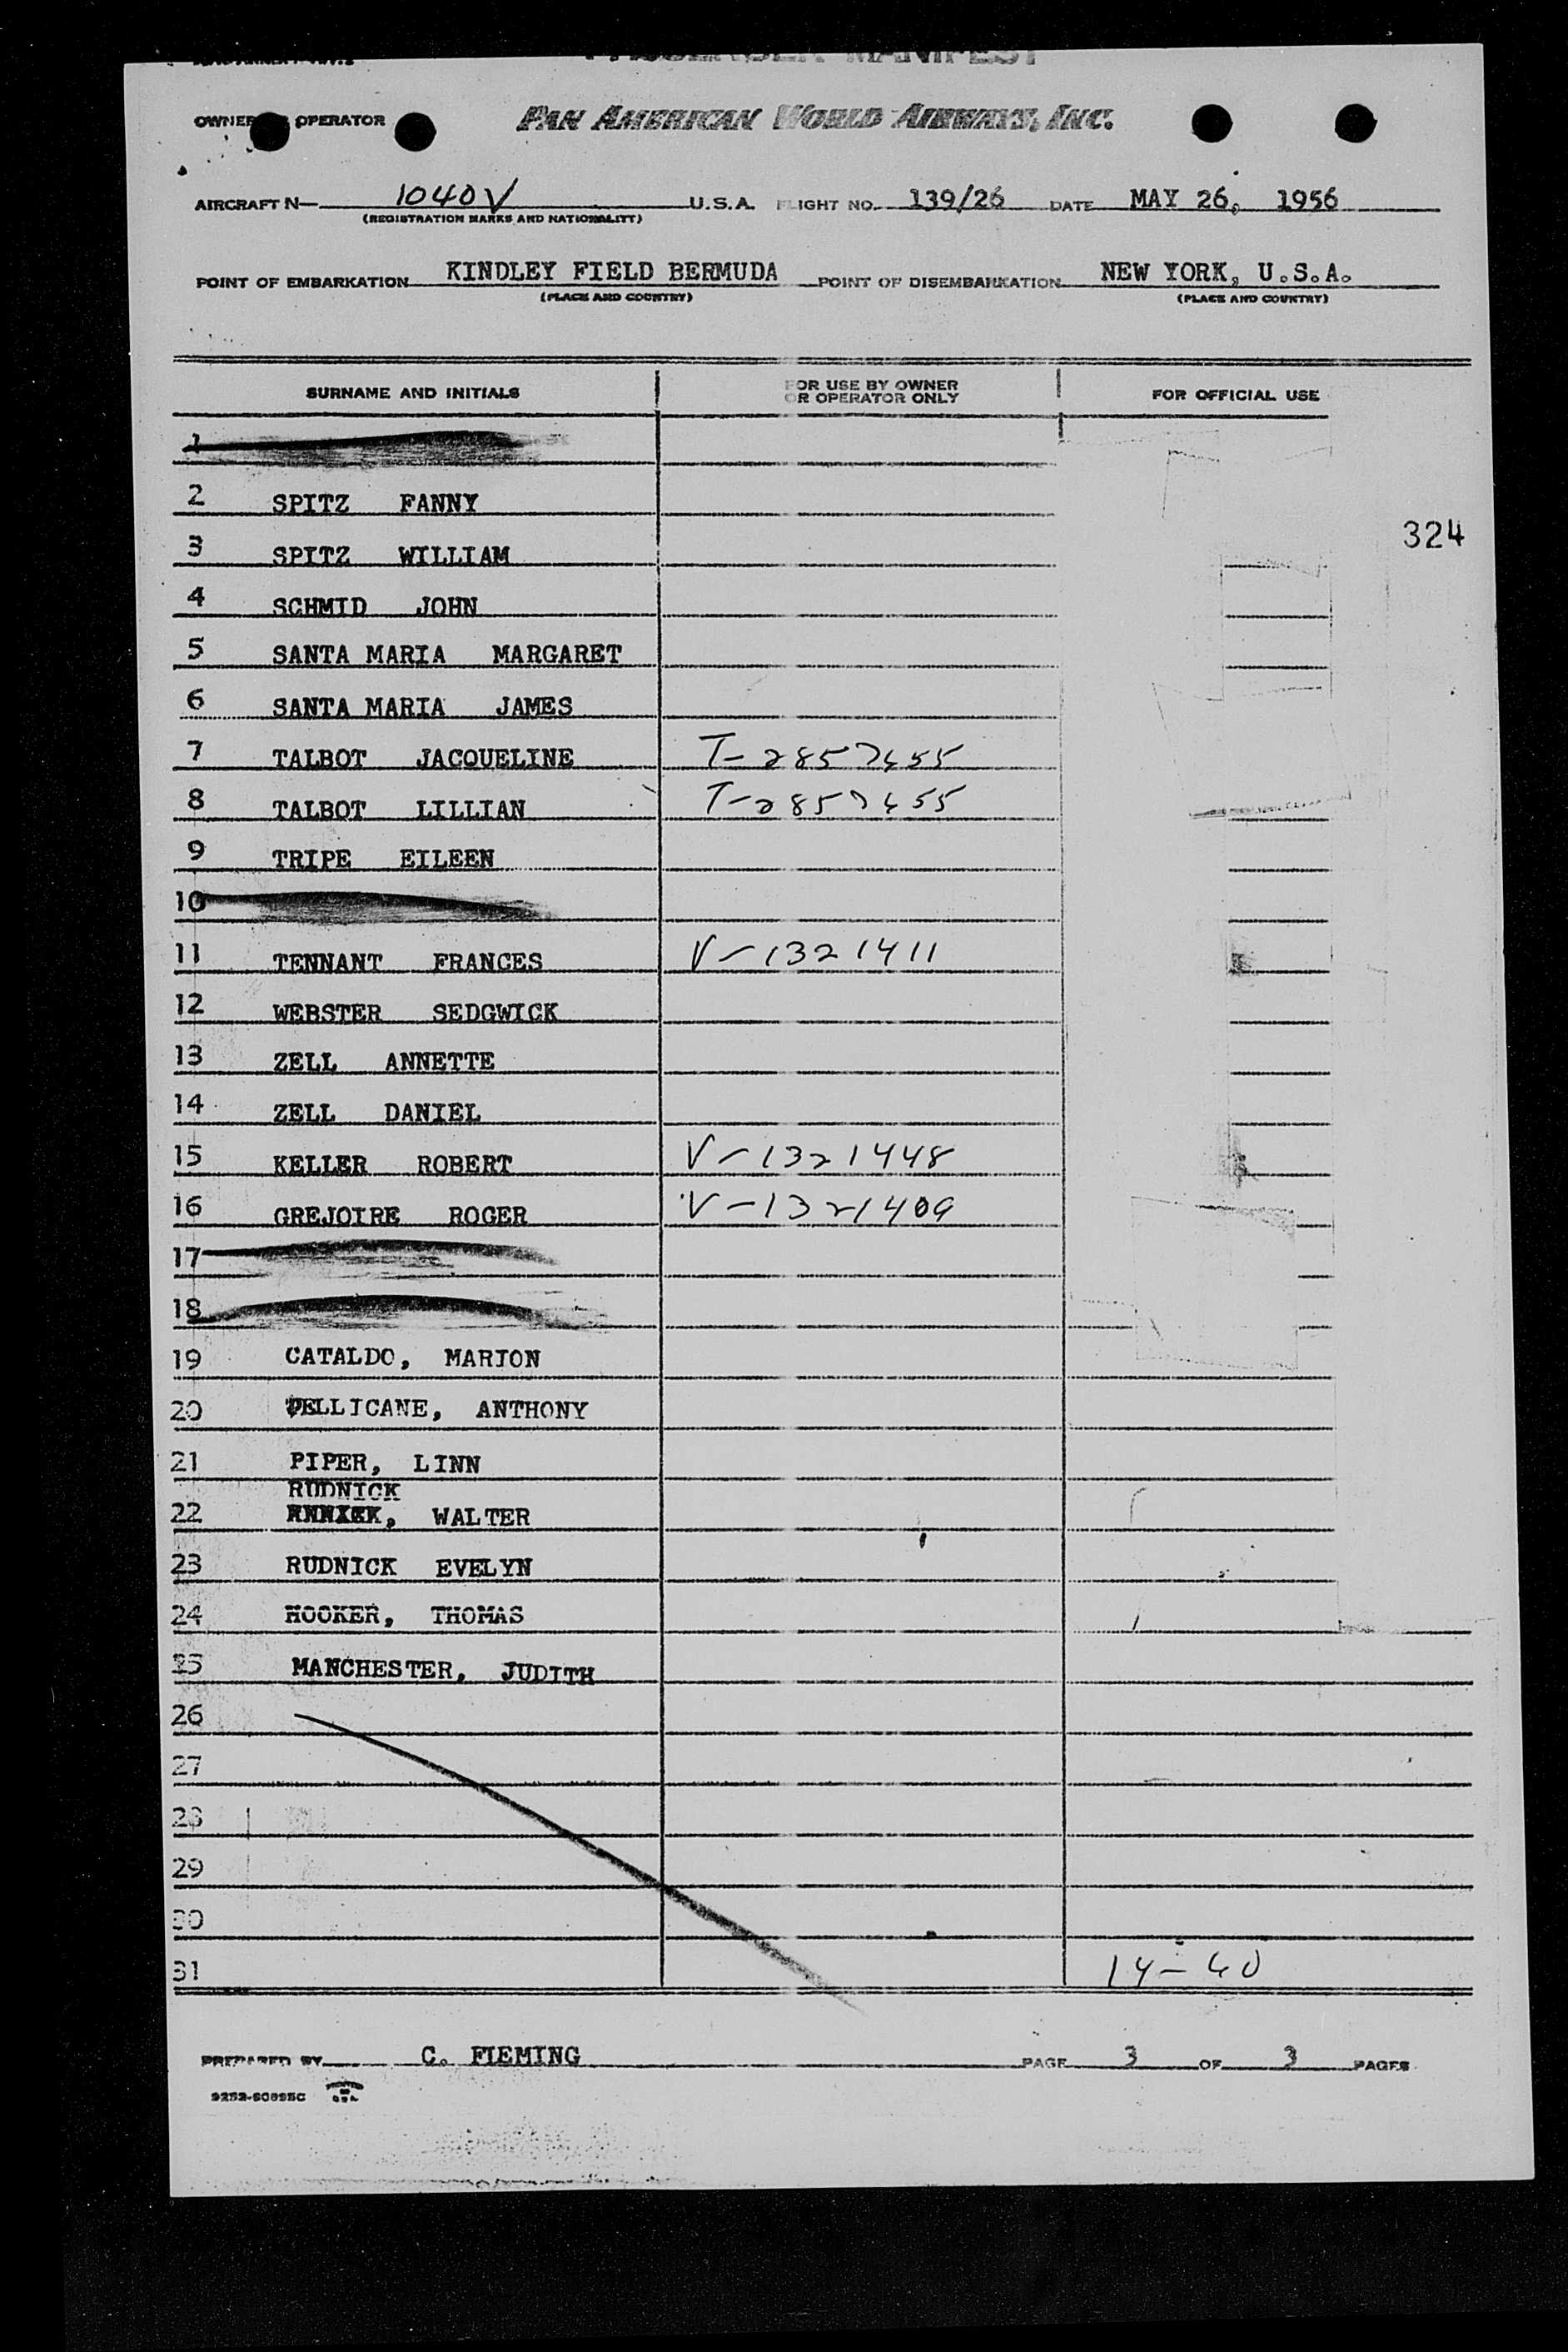 PASSENGER MANIFEST
OWNER OPERATOR PAN AMERICAN WORLD AIRWAYS, INC.
AIRCRAFT N— 1040V U.S.A. FLIGHT NO. 139/26 DATE MAY 26, 1956
(REGISTRATION MARKS AND NATIONALITY)
POINT OF EMBARKATION KINDLEY FIELD BERMUDA POINT OF DISEMBARKATION NEW YORK, U.S.A.
(PLACE AND COUNTRY) (PLACE AND COUNTRY)
SURNAME AND INITIALS FOR USE BY OWNER OR OPERATOR ONLY FOR OFFICIAL USE
1
2 SPITZ FANNY
324
3 SPITZ WILLIAM
4 SCHMID JOHN
5 SANTA MARIA MARGARET
6 SANTA MARIA JAMES
7 TALBOT JACQUELINE T-2857655
8 TALBOT LILLIAN T-2857655
9 TRIPE EILEEN
10
11 TENNANT FRANCES V-1321411
12 WEBSTER SEDGWICK
13 ZELL ANNETTE
14 ZELL DANIEL
15 KELLER ROBERT V-1321448
16 GREJOIRE ROGER V-1321409
17
18
19 CATALDO, MARION
20 PELLICANE, ANTHONY
21 PIPER, LINN
RUDNICK
22 WALTER
23 RUDNICK EVELYN
24 HOOKER, THOMAS
25 MANCHESTER, JUDITH
26
27
28
29
30
31 14-60
PREPARED BY C. FLEMING PAGE 3 OF 3 PAGES
PRINTED IN U.S.A.